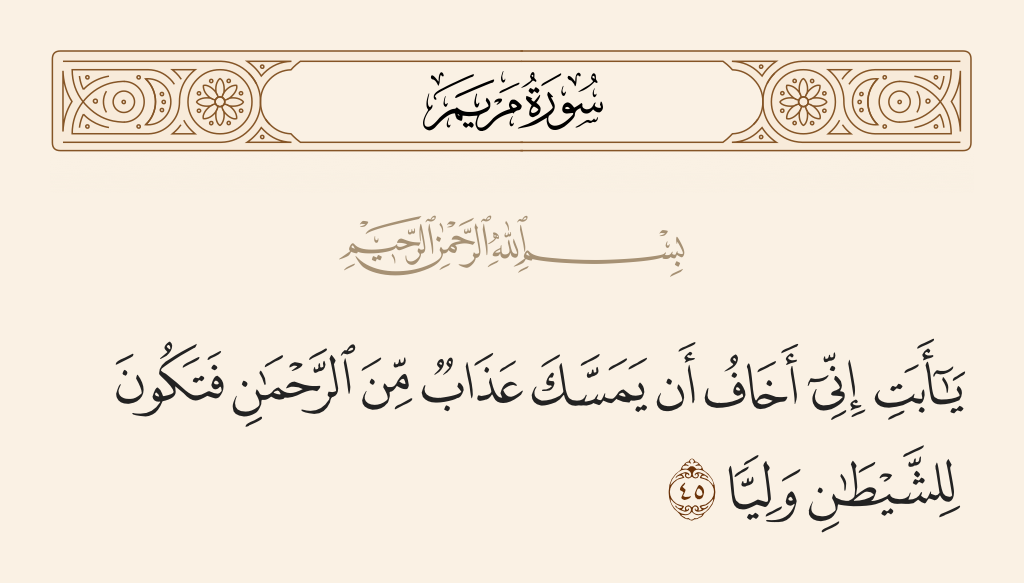 سُورَةُ مَرْيَمَ
بِسْمِ ٱللَّهِ ٱلرَّحْمَٰنِ ٱلرَّحِيمِ
يَـٰٓأَبَتِ إِنِّىٓ أَخَافُ أَن يَمَسَّكَ عَذَابٌ مِّنَ ٱلرَّحْمَـٰنِ فَتَكُونَ
لِلشَّيْطَـٰنِ وَلِيًّا ٤٥